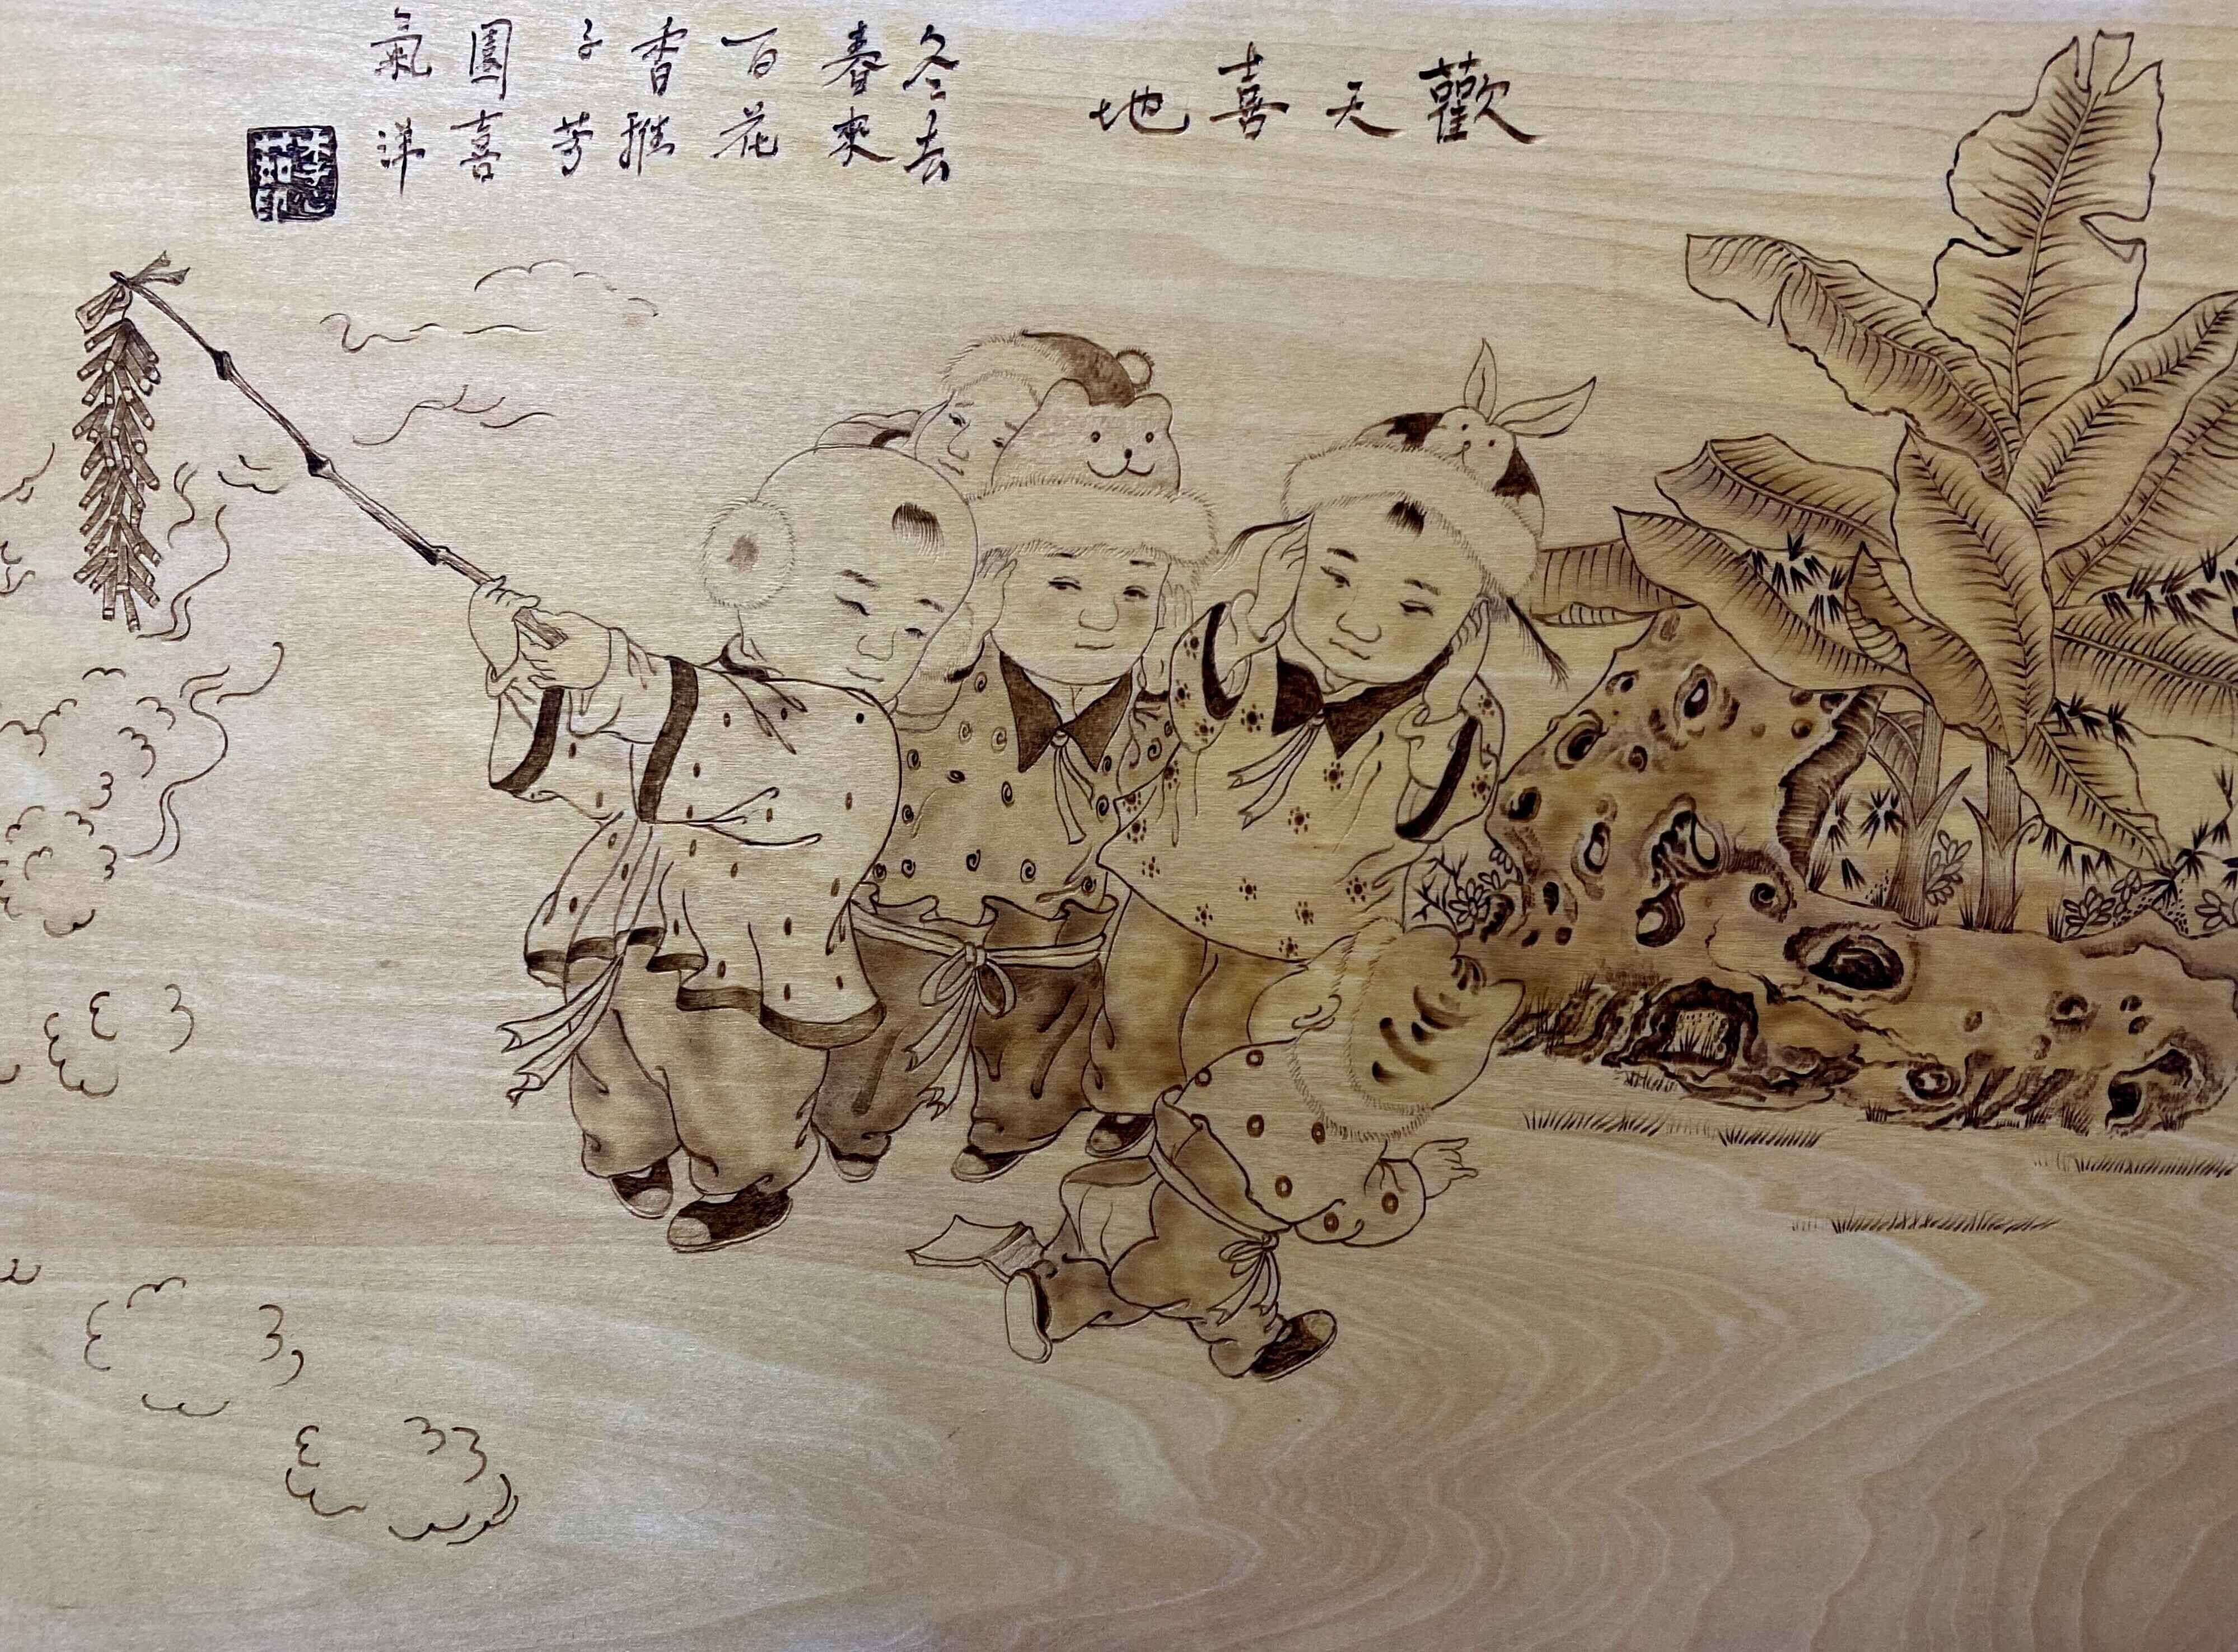 歡天喜地
冬去
春來
百花
香稚
子芳
園喜
氣洋